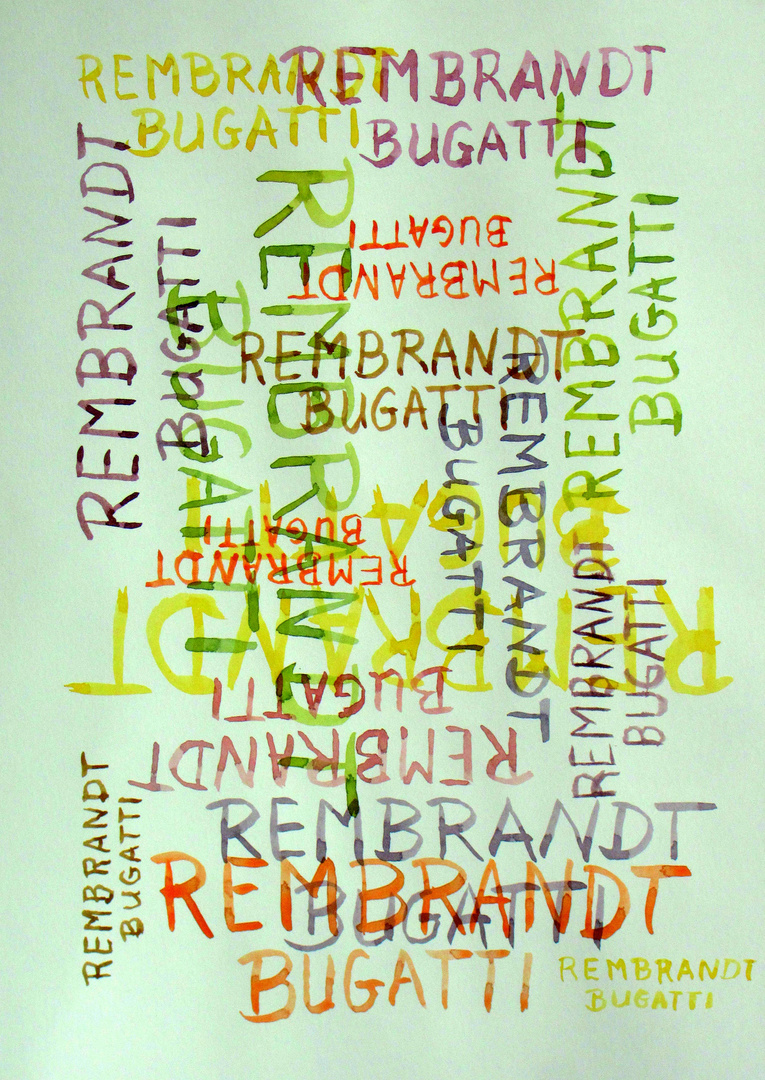 REMBRANDT
BUGATTI
REMBRANDT
BUGATTI
REMBRANDT
BUGATTI
REMBRANDT
BUGATTI
REMBRANDT
BUGATTI
REMBRANDT
BUGATTI
REMBRANDT
BUGATTI
REMBRANDT
BUGATTI
REMBRANDT
BUGATTI
REMBRANDT
BUGATTI
REMBRANDT
BUGATTI
REMBRANDT
BUGATTI
REMBRANDT
BUGATTI
REMBRANDT
BUGATTI
REMBRANDT
BUGATTI
REMBRANDT
BUGATTI